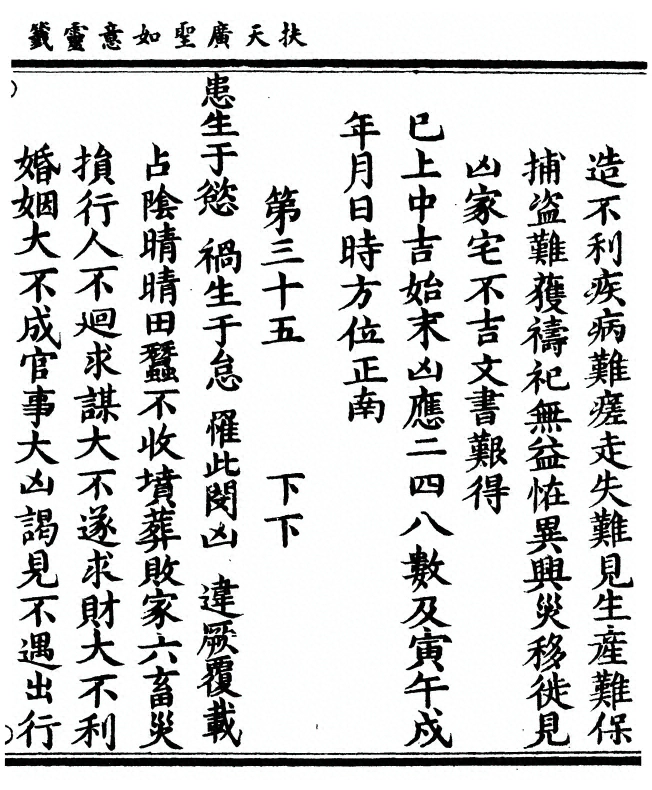 扶天廣聖如意靈籤
造不利疾病難瘥走失難見生產難保
捕盜難獲禱祀無益怪異興災移徙見
凶家宅不吉文書艱得
巳上中吉始末凶應二四八數及寅午戍
年月日時方位正南
第三十五 下下
患生于慾 禍生于怠 罹此閔凶 違厥覆載
占陰晴晴田蠶不收墳葬敗家六畜災
損行人不迴求謀大不遂求財大不利
婚姻大不成官事大凶謁見不遇出行